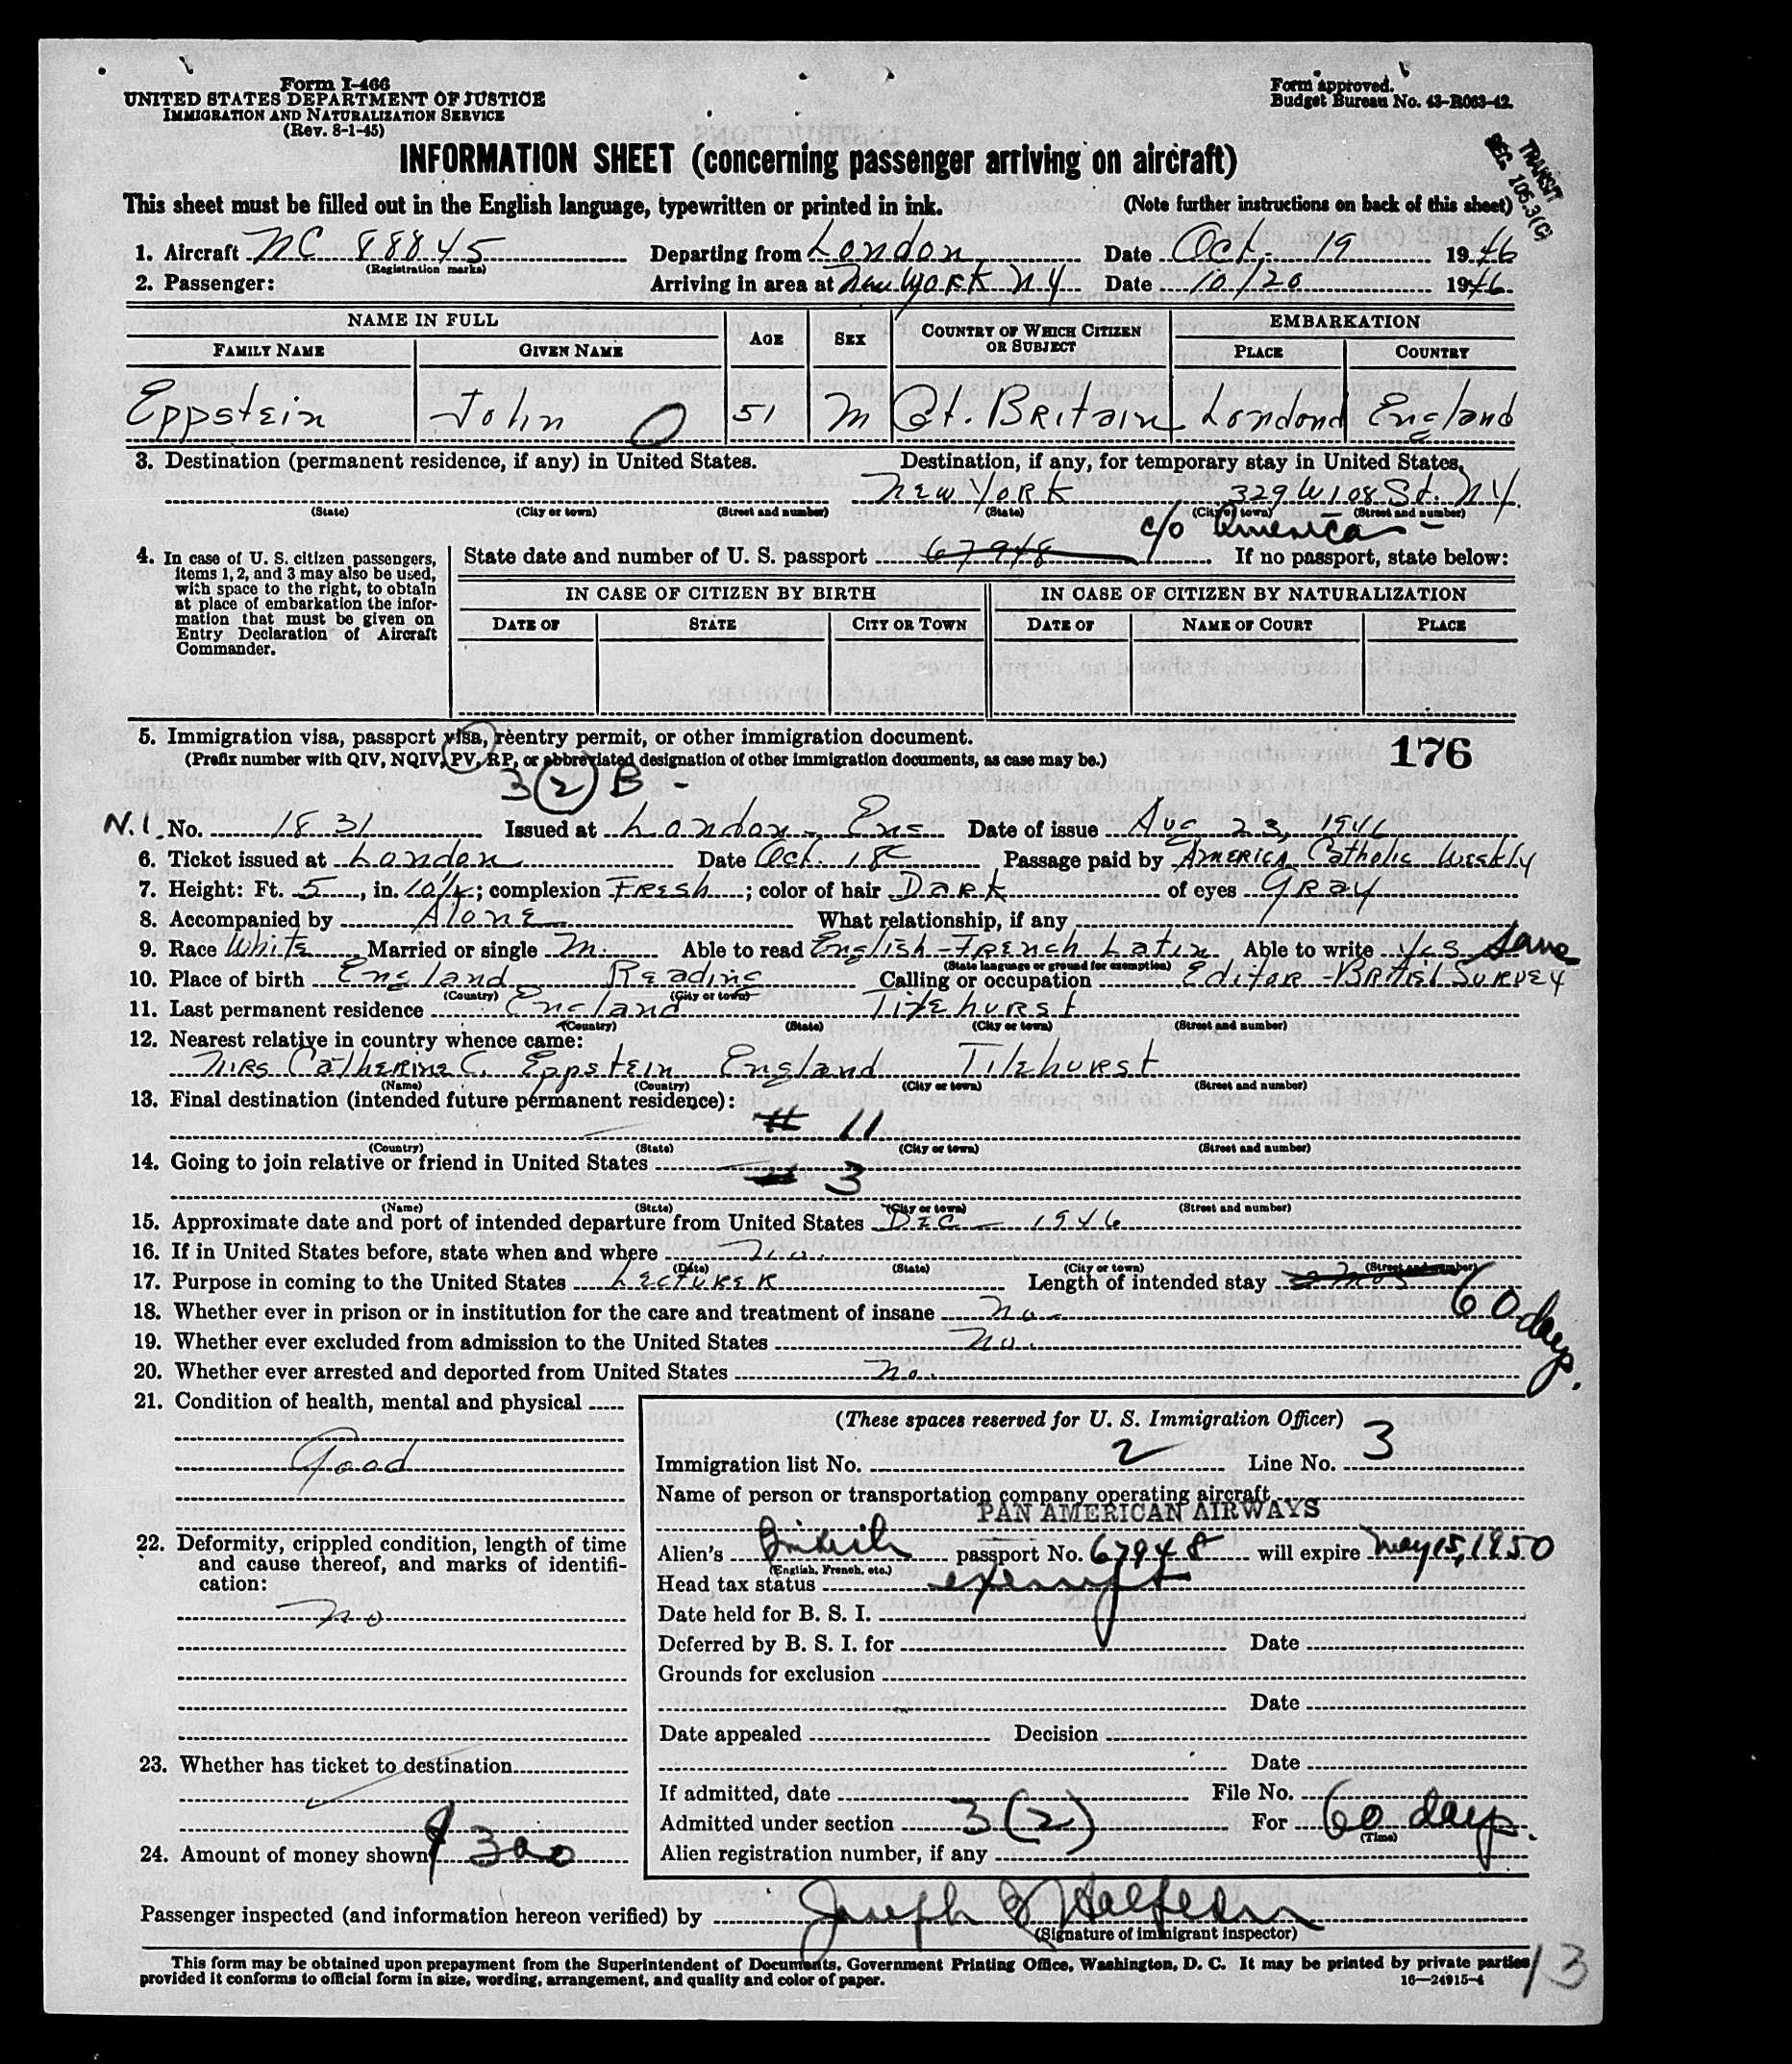 Form I-466
UNITED STATES DEPARTMENT OF JUSTICE
IMMIGRATION AND NATURALIZATION SERVICE
(Rev. 8-1-45)
Form approved.
Budget Bureau No. 43-R063-42.
TRANSIT
SEC. 105.3(C)
INFORMATION SHEET (concerning passenger arriving on aircraft)
This sheet must be filled out in the English language, typewritten or printed in ink. (Note further instructions on back of this sheet)
1. Aircraft NC 88845 Departing from London Date Oct. 19 1946
(Registration marks)
2. Passenger: Arriving in area at New York NY Date 10/20 1946
NAME IN FULL AGE SEX COUNTRY OF WHICH CITIZEN OR SUBJECT EMBARKATION
FAMILY NAME GIVEN NAME PLACE COUNTRY
Eppstein John 51 M Gt. Britain London England
3. Destination (permanent residence, if any) in United States. Destination, if any, for temporary stay in United States.
New York 329 W 108 St. NY.
(State) (City or town) (Street and number) (State) (City or town) (Street and number)
c/o America
4. In case of U. S. citizen passengers, items 1, 2, and 3 may also be used, with space to the right, to obtain at place of embarkation the information that must be given on Entry Declaration of Aircraft Commander.
State date and number of U. S. passport 67948 If no passport, state below:
IN CASE OF CITIZEN BY BIRTH IN CASE OF CITIZEN BY NATURALIZATION
DATE OF STATE CITY OR TOWN DATE OF NAME OF COURT PLACE
5. Immigration visa, passport visa, reentry permit, or other immigration document. 176
(Prefix number with QIV, NQIV, PV, RP, or abbreviated designation of other immigration documents, as case may be.)
3 (2) B -
N.I. No. 1831 Issued at London, Eng Date of issue Aug 23, 1946
6. Ticket issued at London Date Oct. 18 Passage paid by America Catholic Weekly
7. Height: Ft. 5, in. 10½; complexion Fresh; color of hair Dark of eyes Gray
8. Accompanied by Alone What relationship, if any
9. Race White Married or single M. Able to read English-French Latin Able to write Yes Same
(State language or ground for exemption)
10. Place of birth England Reading Calling or occupation Editor - British Survey
(Country) (City or town)
11. Last permanent residence England Tilehurst
(Country) (State) (City or town) (Street and number)
12. Nearest relative in country whence came:
Mrs Catherine C. Eppstein England Tilehurst
(Name) (Country) (City or town) (Street and number)
13. Final destination (intended future permanent residence):
# 11
(Country) (State) (City or town) (Street and number)
14. Going to join relative or friend in United States
# 3
(Name) (State) (City or town) (Street and number)
15. Approximate date and port of intended departure from United States Dec - 1946
16. If in United States before, state when and where No.
(Date) (State) (City or town) (Street and number)
17. Purpose in coming to the United States Lecturer Length of intended stay 60 days.
18. Whether ever in prison or in institution for the care and treatment of insane No
19. Whether ever excluded from admission to the United States No.
20. Whether ever arrested and deported from United States No.
21. Condition of health, mental and physical
Good
22. Deformity, crippled condition, length of time and cause thereof, and marks of identification:
no
23. Whether has ticket to destination
24. Amount of money shown $ 300
(These spaces reserved for U. S. Immigration Officer)
Immigration list No. 2 Line No. 3
Name of person or transportation company operating aircraft
PAN AMERICAN AIRWAYS
Alien's British passport No. 67948 will expire May 15, 1950
(English, French, etc.)
Head tax status exempt
Date held for B. S. I.
Deferred by B. S. I. for Date
Grounds for exclusion
Date
Date appealed Decision
Date
If admitted, date File No.
Admitted under section 3(2) For 60 days.
(Time)
Alien registration number, if any
Passenger inspected (and information hereon verified) by Joseph
(Signature of immigrant inspector)
This form may be obtained upon prepayment from the Superintendent of Documents, Government Printing Office, Washington, D. C. It may be printed by private parties
provided it conforms to official form in size, wording, arrangement, and quality and color of paper. 16—24915-4
13